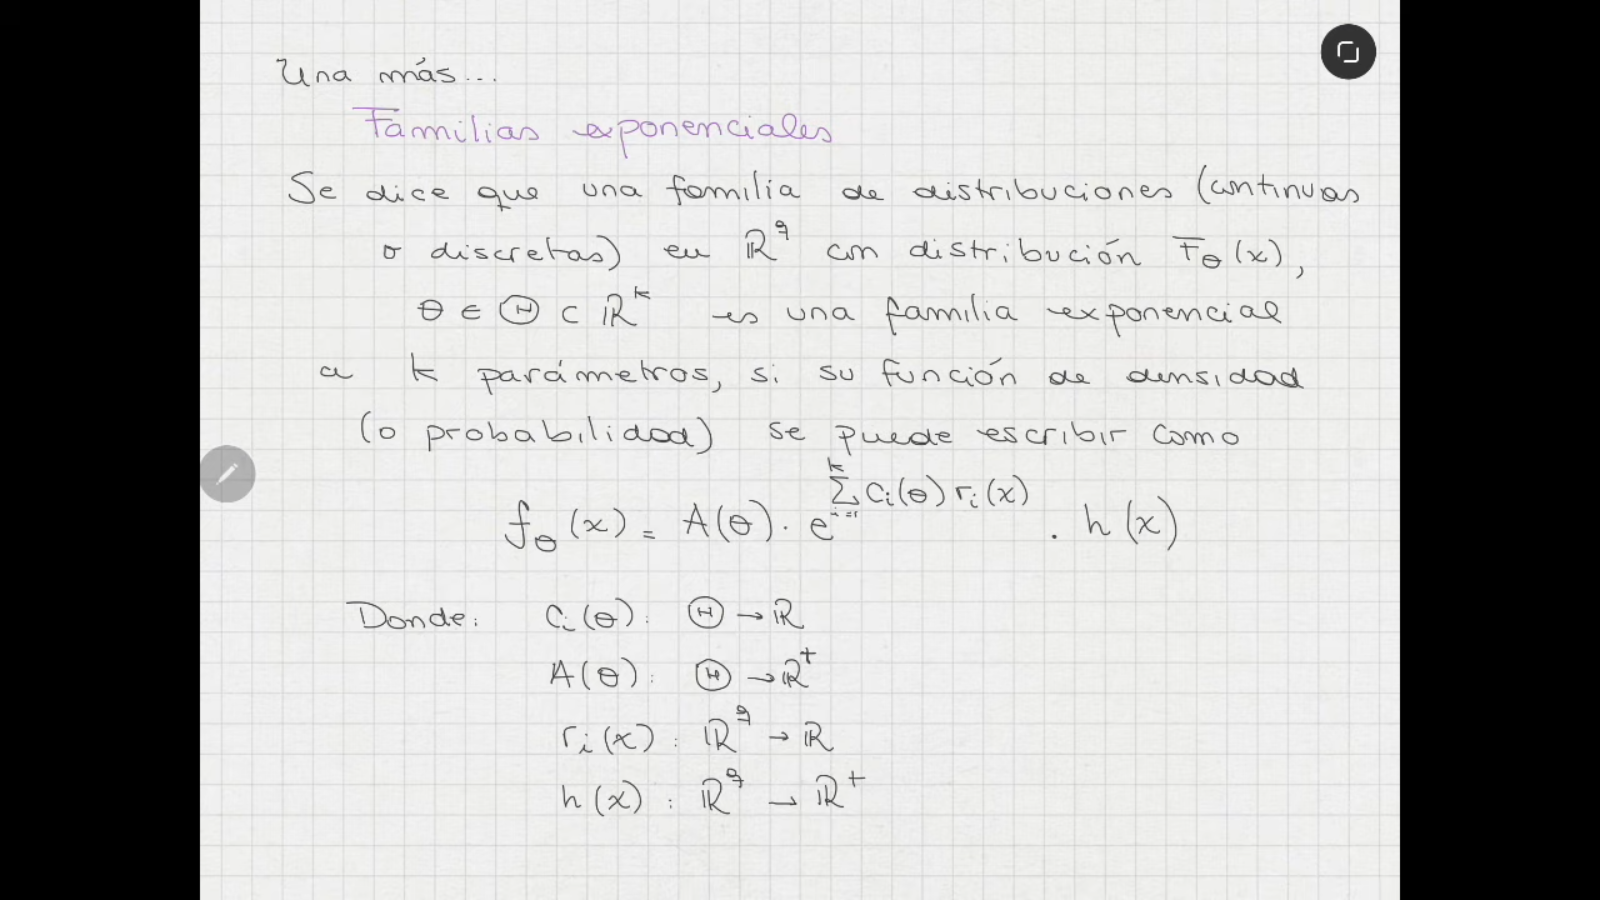 Una más...
Familias exponenciales
Se dice que una familia de distribuciones (continuas
o discretas) en ℝ^q con distribución F_θ(x),
θ ∈ Θ ⊂ ℝ^k es una familia exponencial
a k parámetros, si su función de densidad
(o probabilidad) se puede escribir como
f_θ(x) = A(θ) · e^{∑_{i=1}^{k} c_i(θ) r_i(x)} · h(x)
Donde: c_i(θ): Θ → ℝ
A(θ): Θ → ℝ^+
r_i(x): ℝ^q → ℝ
h(x): ℝ^q → ℝ^+